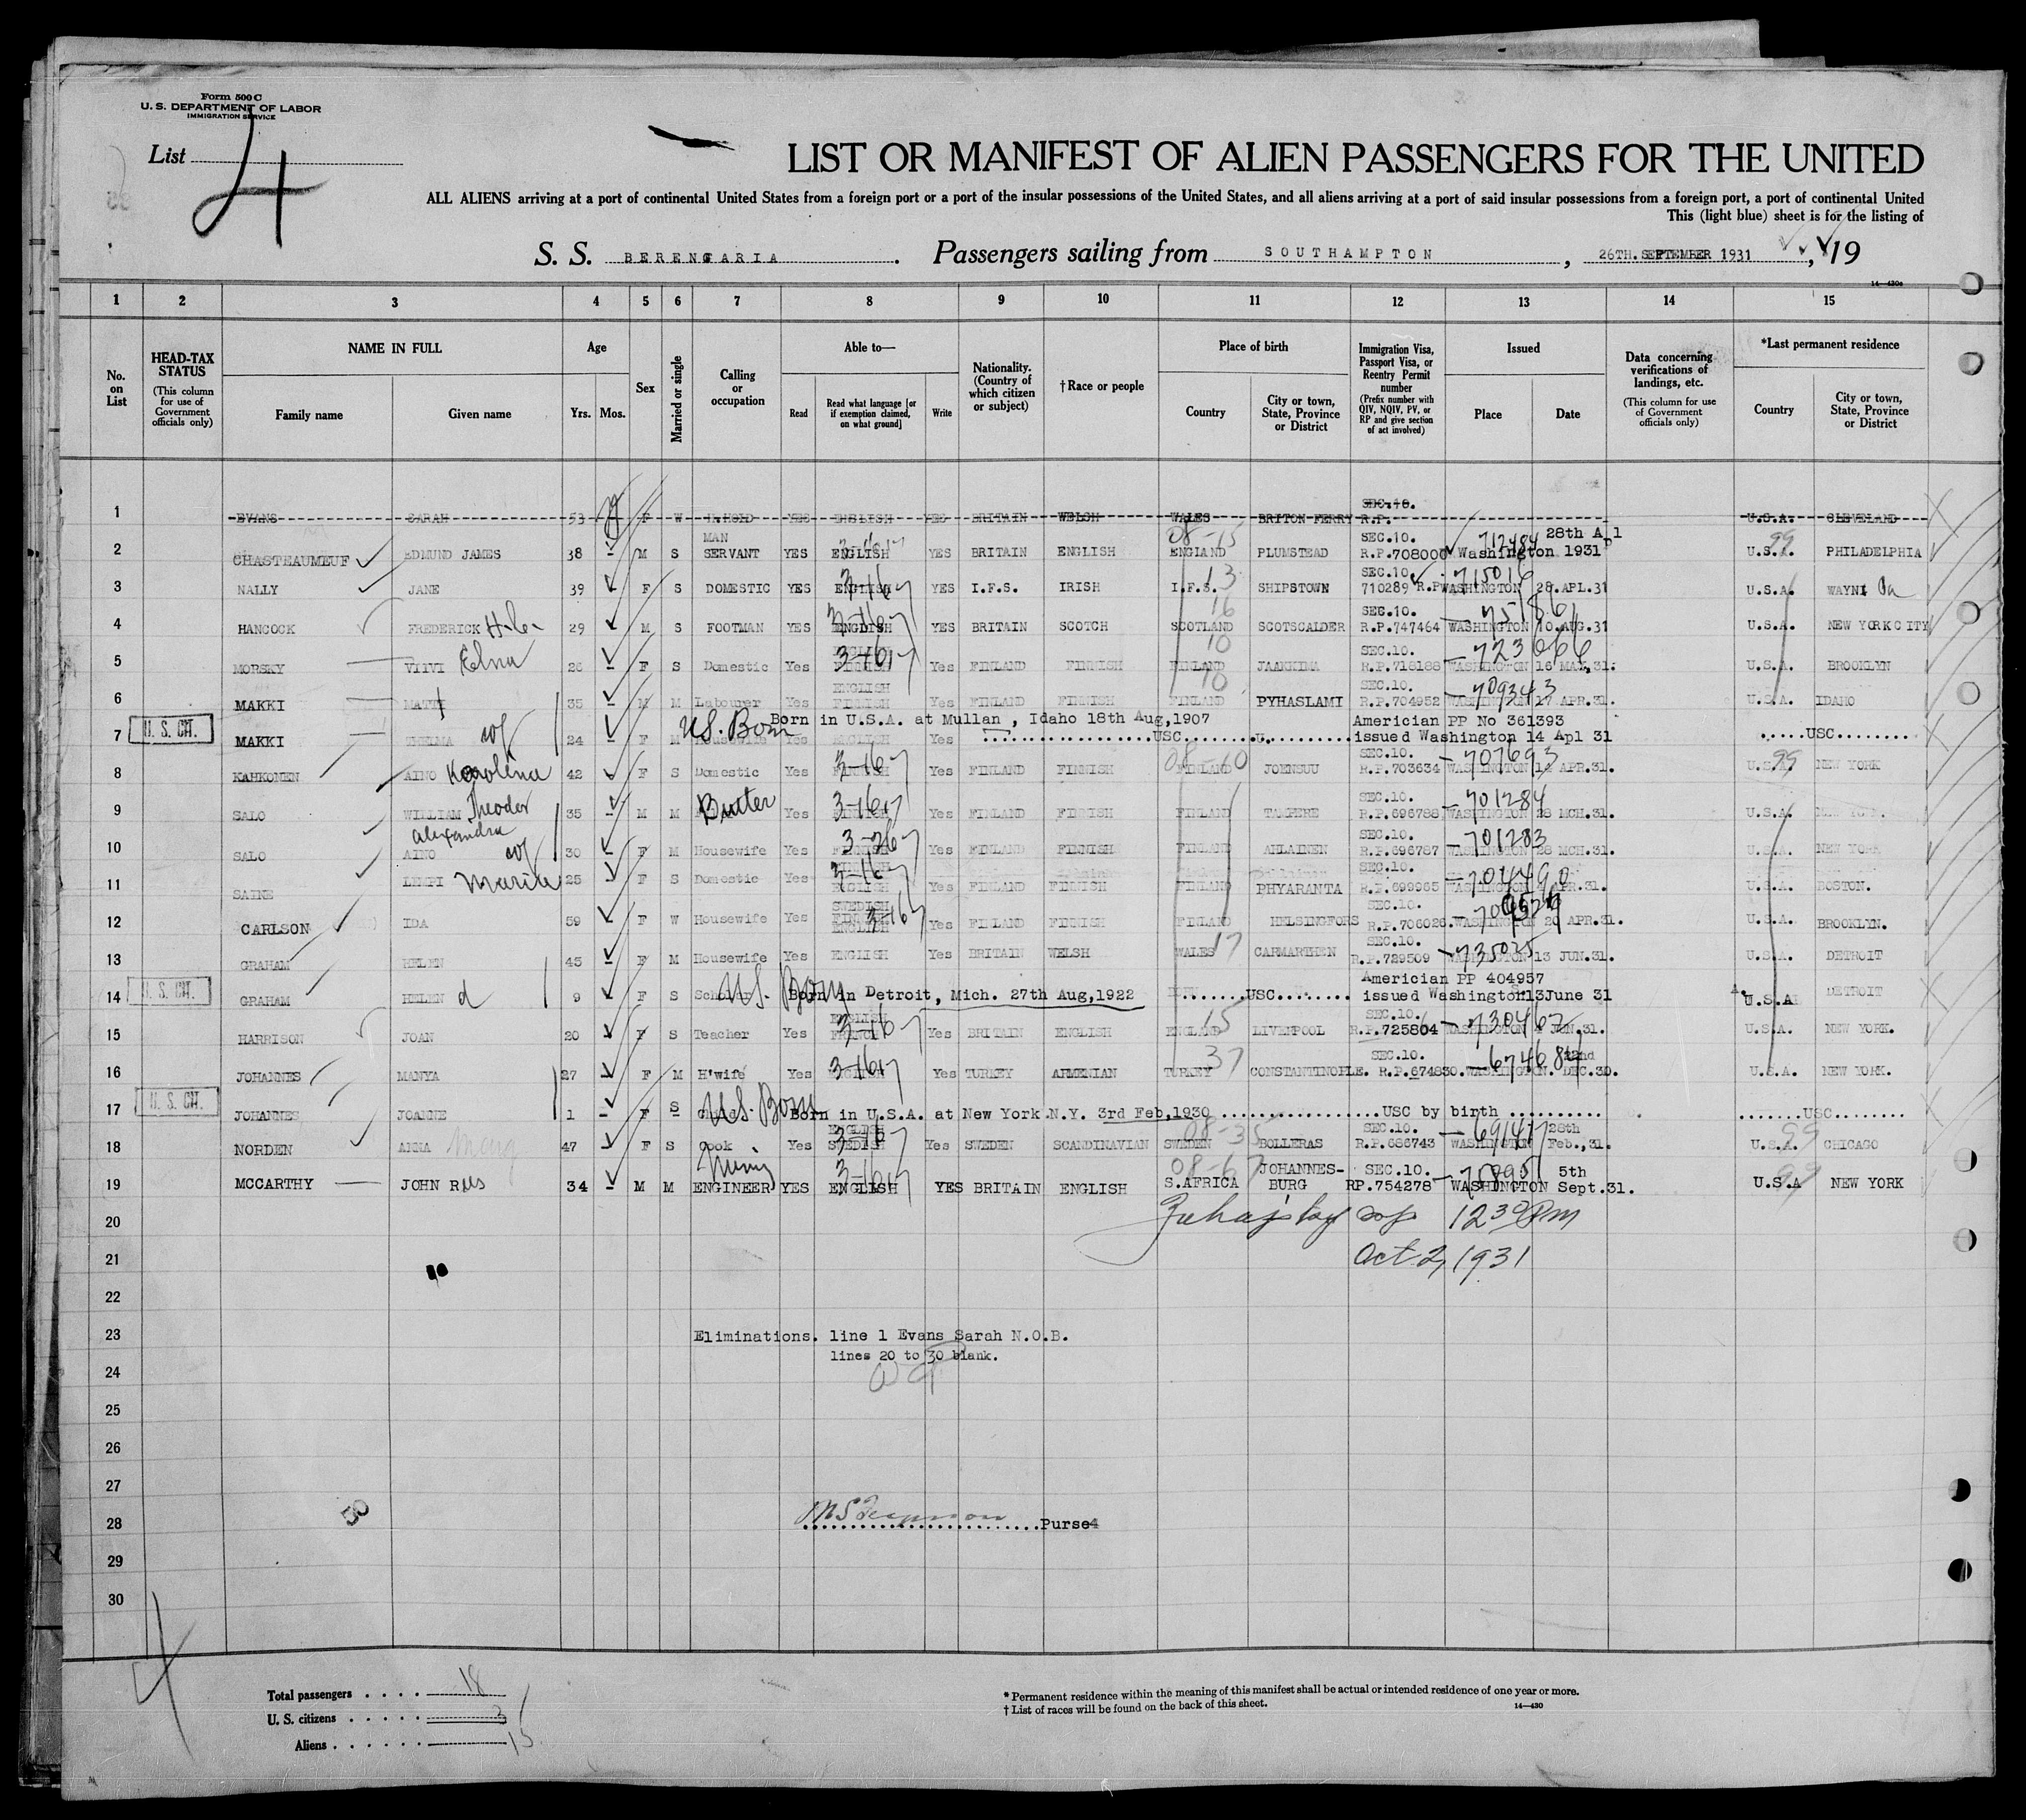 Form 500 C
U. S. DEPARTMENT OF LABOR
IMMIGRATION SERVICE
List 4
LIST OR MANIFEST OF ALIEN PASSENGERS FOR THE UNITED
ALL ALIENS arriving at a port of continental United States from a foreign port or a port of the insular possessions of the United States, and all aliens arriving at a port of said insular possessions from a foreign port, a port of continental United
This (light blue) sheet is for the listing of
S. S. BERENGARIA. Passengers sailing from SOUTHAMPTON, 26TH. SEPTEMBER 1931, 19
14—430c
1 2 3 4 5 6 7 8 9 10 11 12 13 14 15
No. on List
HEAD-TAX STATUS (This column for use of Government officials only)
NAME IN FULL Family name Given name
Age Yrs. Mos.
Sex
Married or single
Calling or occupation
Able to— Read Read what language [or if exemption claimed, on what ground] Write
Nationality. (Country of which citizen or subject)
†Race or people
Place of birth Country City or town, State, Province or District
Immigration Visa, Passport Visa, or Reentry Permit number (Prefix number with QIV, NQIV, PV, or RP and give section of act involved)
Issued Place Date
Data concerning verifications of landings, etc. (This column for use of Government officials only)
*Last permanent residence Country City or town, State, Province or District
1 EVANS SARAH 53 F W H.HOLD YES ENGLISH YES BRITAIN WELSH WALES BRITON FERRY SEC.10. R.P. U.S.A. CLEVELAND
2 CHASTEAUMEUF EDMUND JAMES 38 M S MAN SERVANT YES ENGLISH YES BRITAIN ENGLISH 08-15 ENGLAND PLUMSTEAD SEC.10. R.P.708000 712484 Washington 28th Apl 1931 99 U.S.A. PHILADELPHIA
3 NALLY JANE 39 F S DOMESTIC YES ENGLISH 3-167 YES I.F.S. IRISH 13 I.F.S. SHIPSTOWN SEC.10. 710289 R.P. 715016 WASHINGTON 28.APL.31 U.S.A. WAYNE Pa
4 HANCOCK FREDERICK 29 M S FOOTMAN YES ENGLISH 3-167 YES BRITAIN SCOTCH 16 SCOTLAND SCOTSCALDER SEC.10. R.P.747464 75186 WASHINGTON 10.AUG.31 U.S.A. NEW YORK CITY
5 MORSKY VIIVI Elna 26 F S Domestic Yes ENGLISH FINNISH 3-167 Yes FINLAND FINNISH 10 FINLAND JAAKKIMA SEC.10. R.P.718188 723066 WASHINGTON 16 MAY,31. U.S.A. BROOKLYN
6 MAKKI MATTI 35 M M Labourer Yes ENGLISH FINNISH Yes FINLAND FINNISH 10 FINLAND PYHASLAMI SEC.10. R.P.704952 709343 WASHINGTON 17 APR.31. U.S.A. IDAHO
7 U.S. CIT. MAKKI THELMA wf 24 F M Housewife Yes ENGLISH Yes US. Born Born in U.S.A. at Mullan, Idaho 18th Aug,1907 USC U. Americian PP No 361393 issued Washington 14 Apl 31 USC
8 KAHKONEN AINO Karolina 42 F S Domestic Yes FINNISH 3-167 Yes FINLAND FINNISH 08-10 FINLAND JOENSUU SEC.10. R.P.703634 707693 WASHINGTON 14 APR.31. 99 U.S.A. NEW YORK
9 SALO WILLIAM Theodor 35 M M Butler Yes FINNISH 3-167 Yes FINLAND FINNISH FINLAND TAMPERE SEC.10. R.P.696788 701284 WASHINGTON 28 MCH.31. U.S.A. NEW YORK.
10 SALO AINO Alexandra wf 30 F M Housewife Yes FINNISH 3-267 Yes FINLAND FINNISH FINLAND AHLAINEN SEC.10. R.P.696787 701283 WASHINGTON 28 MCH.31. U.S.A. NEW YORK
11 SAINE LEMPI Maria 25 F S Domestic Yes FINNISH ENGLISH 3-167 Yes FINLAND FINNISH FINLAND PHYARANTA SEC.10. R.P.699965 704490 WASHINGTON APR.31. U.S.A. BOSTON.
12 CARLSON IDA 59 F W Housewife Yes SWEDISH FINNISH ENGLISH 3-167 Yes FINLAND FINNISH FINLAND HELSINGFORS SEC.10. R.P.706026. WASHINGTON 20 APR.31. U.S.A. BROOKLYN.
13 GRAHAM HELEN 45 F M Housewife Yes ENGLISH Yes BRITAIN WELSH WALES 17 CARMARTHEN SEC.10. R.P.729509 735025 WASHINGTON 13 JUN.31. U.S.A. DETROIT
14 U.S. CIT. GRAHAM HELEN d 9 F S Scholar US. Born Born in Detroit, Mich. 27th Aug,1922 USC Americian PP 404957 issued Washington 13 June 31 U.S.A DETROIT
15 HARRISON JOAN 20 F S Teacher Yes ENGLISH FRENCH 3-167 Yes BRITAIN ENGLISH 15 ENGLAND LIVENPOOL SEC.10. R.P.725804 730467 WASHINGTON 4 JUN,31. U.S.A. NEW YORK.
16 JOHANNES MANYA 27 F M H'wife Yes ENGLISH 3-167 Yes TURKEY ARMENIAN 37 TURKEY CONSTANTINOPLE. SEC.10. R.P.674830. 674684 WASHINGTON. 22nd DEC.30. U.S.A. NEW YORK.
17 U.S. CIT. JOHANNES JOANNE 1 F S Child US. Born Born in U.S.A. at New York N.Y. 3rd Feb,1930 USC by birth USC
18 NORDEN ANNA Mary 47 F S Cook Yes ENGLISH SWEDISH 3-167 Yes SWEDEN SCANDINAVIAN 08-35 SWEDEN BOLLERAS SEC.10. R.P.686743 691477 WASHINGTON 28th Feb.,31. 99 U.S.A. CHICAGO
19 MCCARTHY JOHN R 34 M M Mining ENGINEER YES ENGLISH 3-167 YES BRITAIN ENGLISH 08-67 S.AFRICA JOHANNES-BURG SEC.10. RP.754278 75895 WASHINGTON 5th Sept.31. 99 U.S.A NEW YORK
20 12 30 Pm
21 Oct 2, 1931
22
23 Eliminations. line 1 Evans Sarah N.O.B.
lines 20 to 30 blank.
24
25
26
27
28 50 Purse4
29
30
4
Total passengers 18
U. S. citizens 3
Aliens 15
* Permanent residence within the meaning of this manifest shall be actual or intended residence of one year or more.
† List of races will be found on the back of this sheet.
14—430